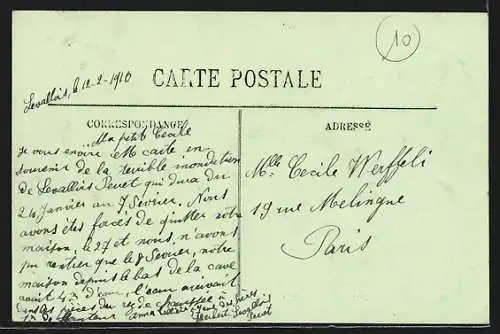 10
Levallois, le 12-2-1910
CARTE POSTALE
CORRESPONDANCE
ADRESSE
Ma petite Cécile
Je vous envoie cette carte en
souvenir de la terrible inondation
de Levallois Perret qui dura du
24 Janvier au 7 Février. Nous
avons étés forcés de quitter notre
maison, le 27 et nous n'avons
pu rentier que le 8 Février, notre
maison depuis le bas de la cave
avait 4m d'eau, l'eau arrivait
dans les pièces du rez de chaussée à
Emma
Levallois
Perret
Mlle Cécile Werffeli
19 rue Melingue
Paris